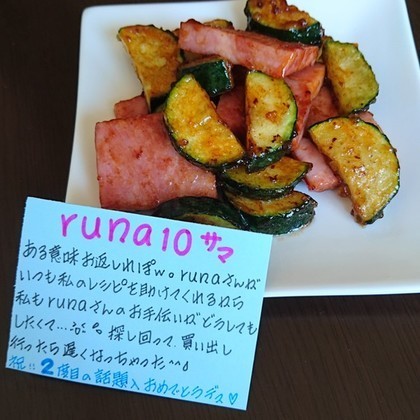 runa10サマ
ある意味お返しれぽw。runaさんが
いつも私のレシピを助けてくれるなら
私もrunaさんのお手伝いがどうしても
したくて… 探し回って、買い出し
行ったら遅くなっちゃった^^;
祝!!2度目の話題入おめでとうデス♡